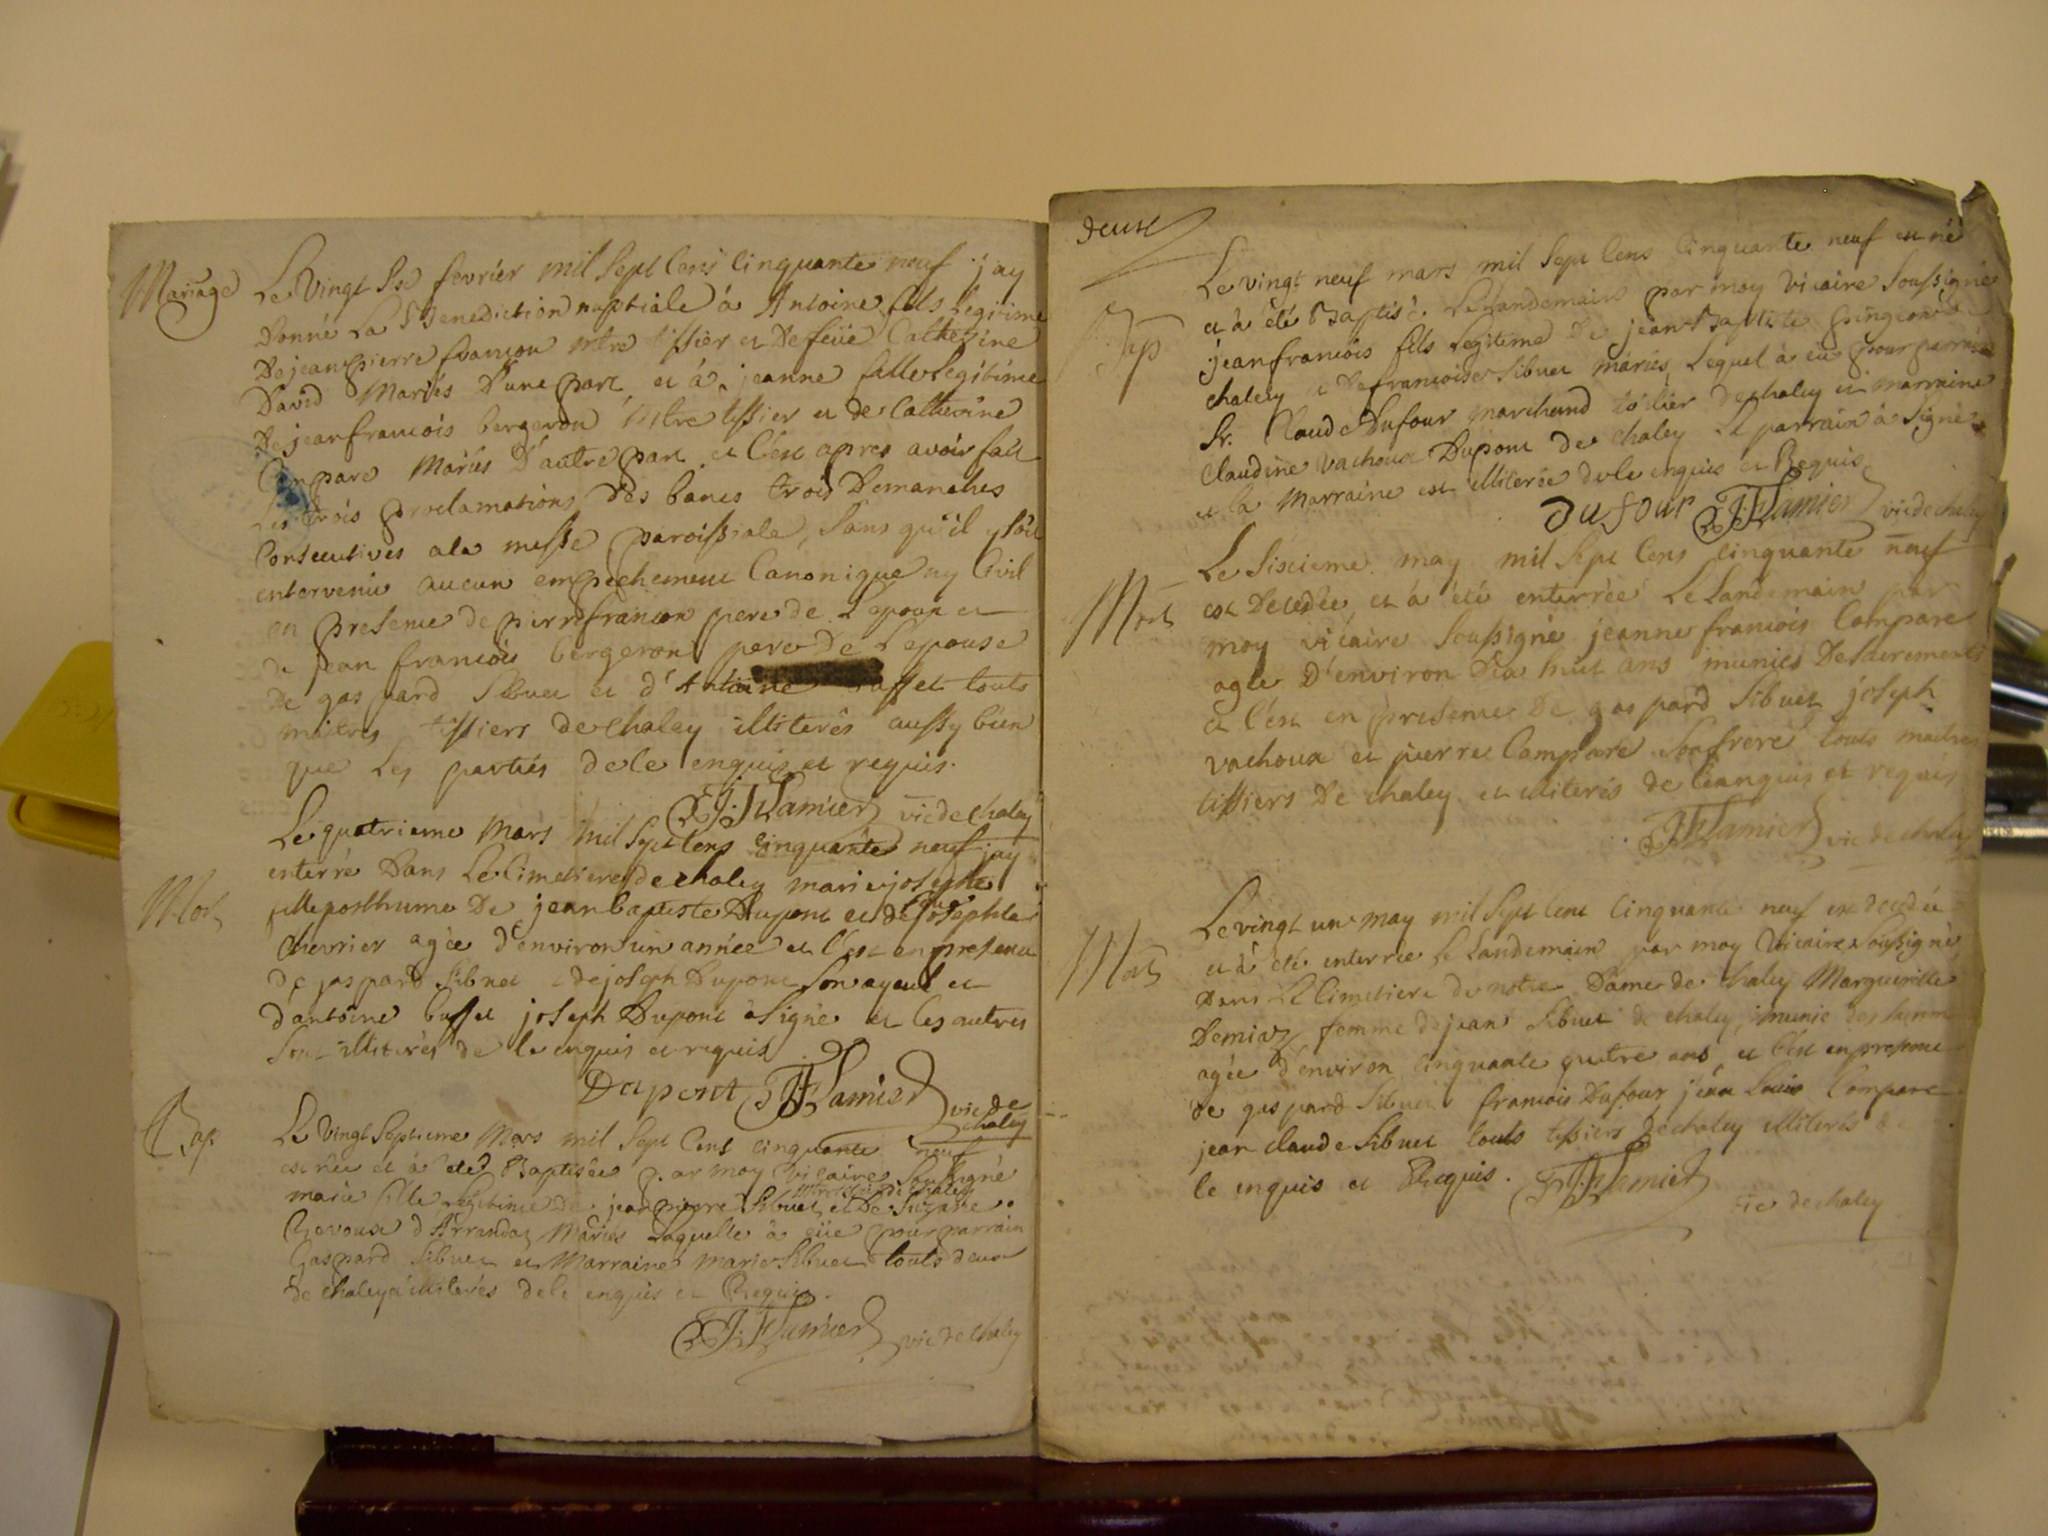 Mariage
Le vingt six fevrier mil sept cens cinquante neuf jay
donné la Benediction nuptiale à Antoine fils legitime
de jean pierre francon mtre tissier et de feüe Catherine
David Mariés d'une part et à jeanne fille legitime
de jean francois bergeron mtre tissier et de Catherine
Compare Mariés d'autre part et c'est apres avoir fait
les trois proclamations des bancs trois Demanches
consecutives a la messe paroissiale, sans qu'il y soit
entervenu aucun empechement Canonique ny Civil
en presence de pierre francon pere de L'epoux et
de jean francois bergeron pere de L'epouse
de gaspard Sibuet et d'Antoine buffet touts
maitres tissiers de chaley illiterés aussy bien
que les parties de ce enquis et requis.
J. F. Jamier vic de chaley
Mort
Le quatrieme Mars mil sept cens cinquante neuf jay
enterré dans Le Cimetiere de chaley marie josephte
fille posthume de jean baptiste Dupont et de josephte
Chevrier agée d'environ un année et c'est en presence
de gaspard Sibuet de joseph Dupont son ayeul et
d'antoine buffet joseph Dupont à signé et les autres
sont illiterés de ce enquis et requis
Dupont J. F. Jamier vic de
chaley
Bap
Le vingt septieme Mars mil sept cens cinquante neuf
est née et à eté Baptisée par moy vicaire soussigné
mtre tissier de chaley
marie fille legitime de jean pierre Sibuet et de Suzanne
Revoux d'Arrandaz Mariés laquelle à eüe pour parrain
Gaspard Sibuet et Marraine marie Sibuet touts deux
de chaley illiterés de ce enquis et Requis.
J. F. Jamier vic de chaley
deux
Bap
Le vingt neuf mars mil sept cens cinquante neuf est né
et à été Baptisé le landemain par moy vicaire soussigné
jean francois fils legitime de jean Baptiste pingeon de
chaley et de francoise Sibuet mariés, lequel à eu pour parrain
Sr. Claude Dufour marchand toilier de chaley et marraine
Claudine Vachoux Dupont de chaley le parrain à signé
et la Marraine est illiterée de ce enquis et Requis
Dufour J. F. Jamier vic de chaley
Mort
Le sixieme may mil sept cens cinquante neuf
est decedée, et à été enterrée Le landemain par
moy vicaire soussigné jeanne francois Compare
agée d'environ dix huit ans munies de sacrements
et c'est en presence de gaspard Sibuet joseph
vachoux et pierre Compare son frere touts maitres
tissiers de chaley et illiterés de ce anquis et requis
J. F. Jamier vic de chaley
Mort
Le vingt un may mil sept cent cinquante neuf est decedée
et à été enterrée le landemain par moy vicaire soussigné,
dans le Cimetiere de notre Dame de chaley Marguerite
Demiaz femme de jean Sibuet de chaley, munie des
agée d'environ cinquante quatre ans, et c'est en presence
de gaspard Sibuet francois Dufour jean Louis Compare
jean claude Sibuet touts tissiers de chaley illiterés de
ce enquis et Requis. J. F. Jamier
vic de chaley